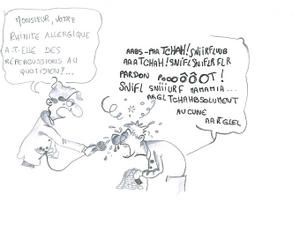 MONSIEUR, VOTRE
RHINITE ALLERGIQUE
A.T.ELLE DES
RÉPERCUSSIONS AU
QUOTIDIEN?...
AABS-AAATCHAH! SNIIRFLUUB
AAATCHAH! SNIFLSNIFLRFLR
PARDON POOÔÔÔOT!
SNIFL SNIIIURF MAMAMIA...
AARGLTCHAHBSOLUMENT
AUCUNE